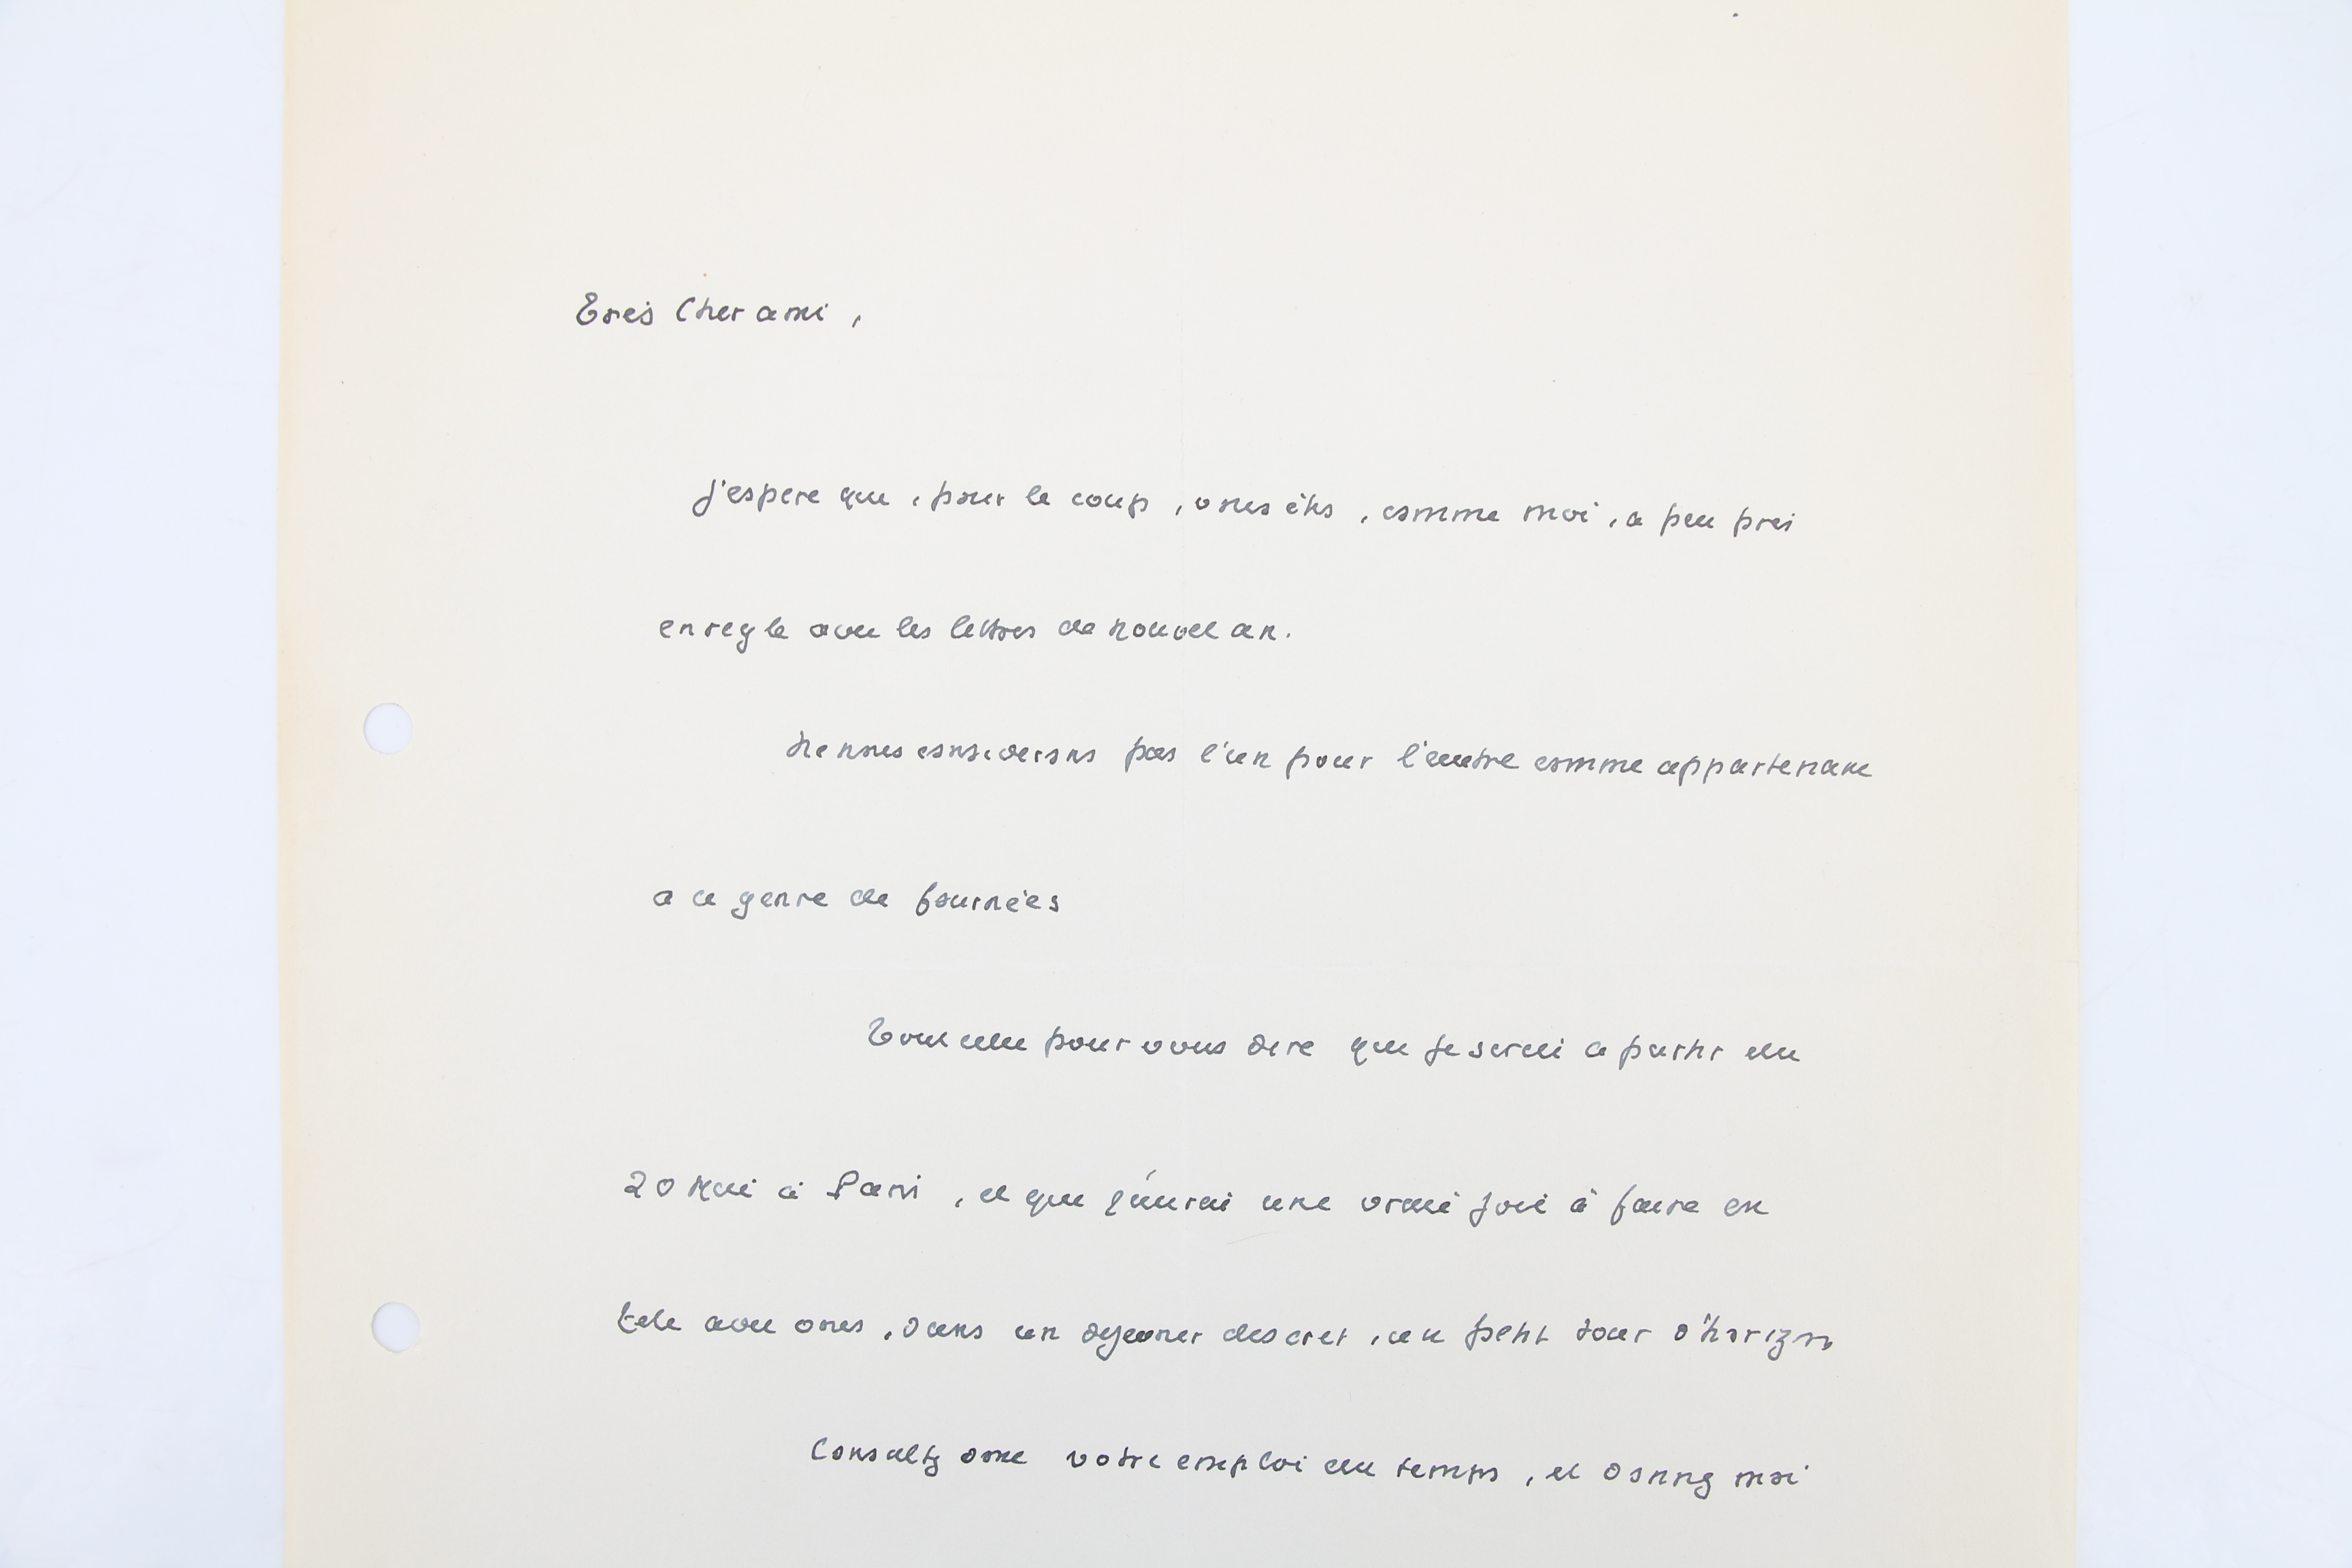 Très Cher ami,
j'espere que, pour le coup, vous êtes, comme moi, a peu près
en regle avec les lettres de nouvel an.
Ne nous considerons pas l'un pour l'autre comme appartenant
a ce genre de fournées
Tout cela pour vous dire que je serai a partir du
20 Mai à Paris, et que j'aurai une vraie joie à faire en
tete avec vous, dans un dejeuner discret, un petit tour d'horizon
Consultez donc votre emploi du temps, et donnez moi